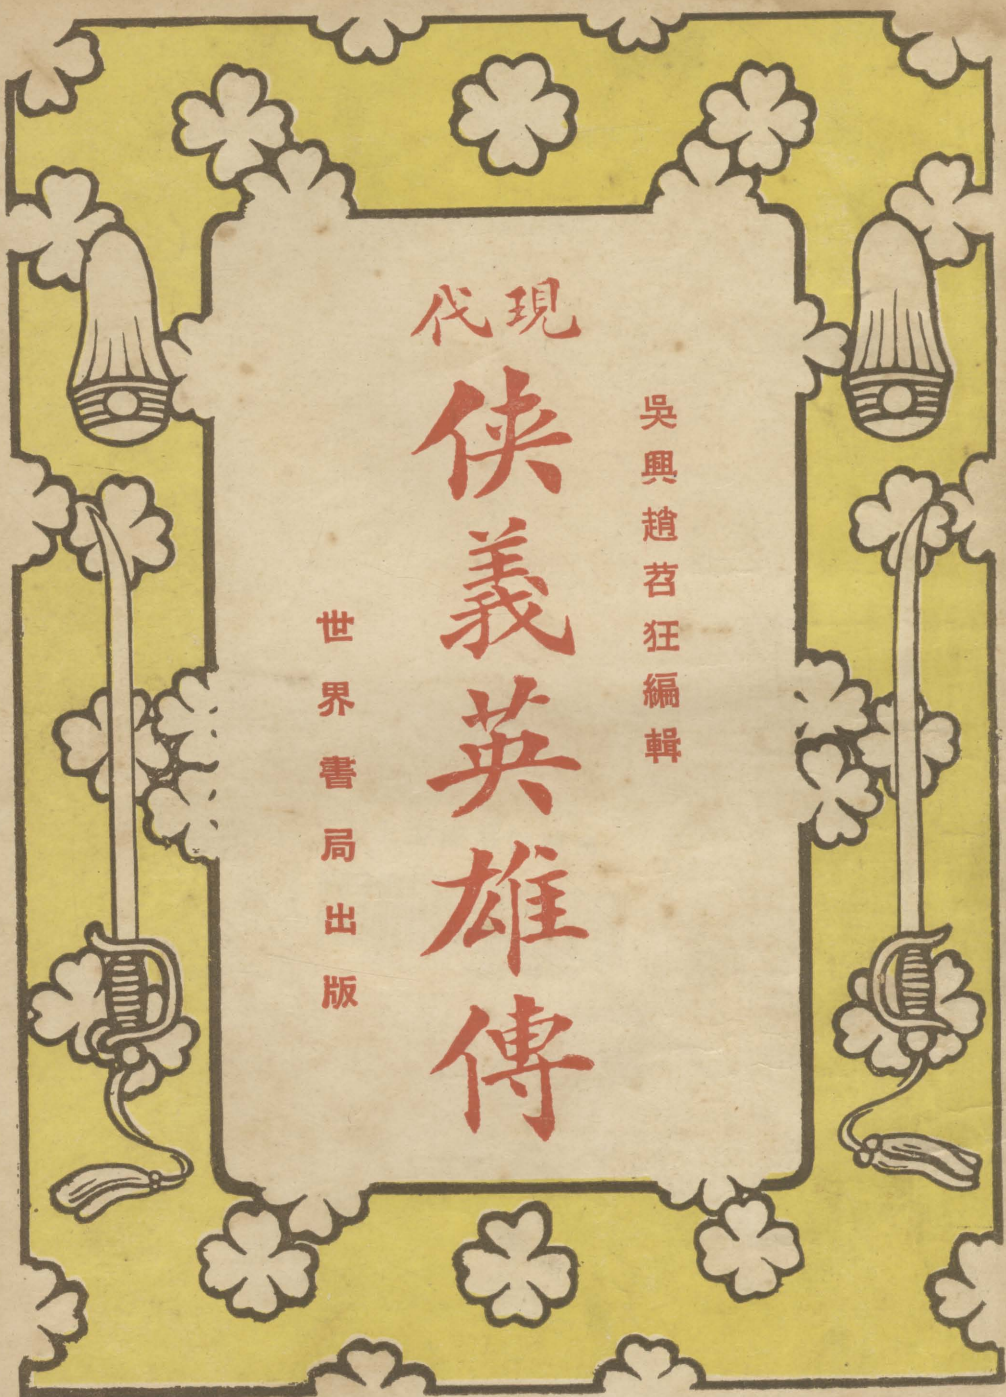 吳興趙苕狂編輯
現代
俠義英雄傳
世界書局出版